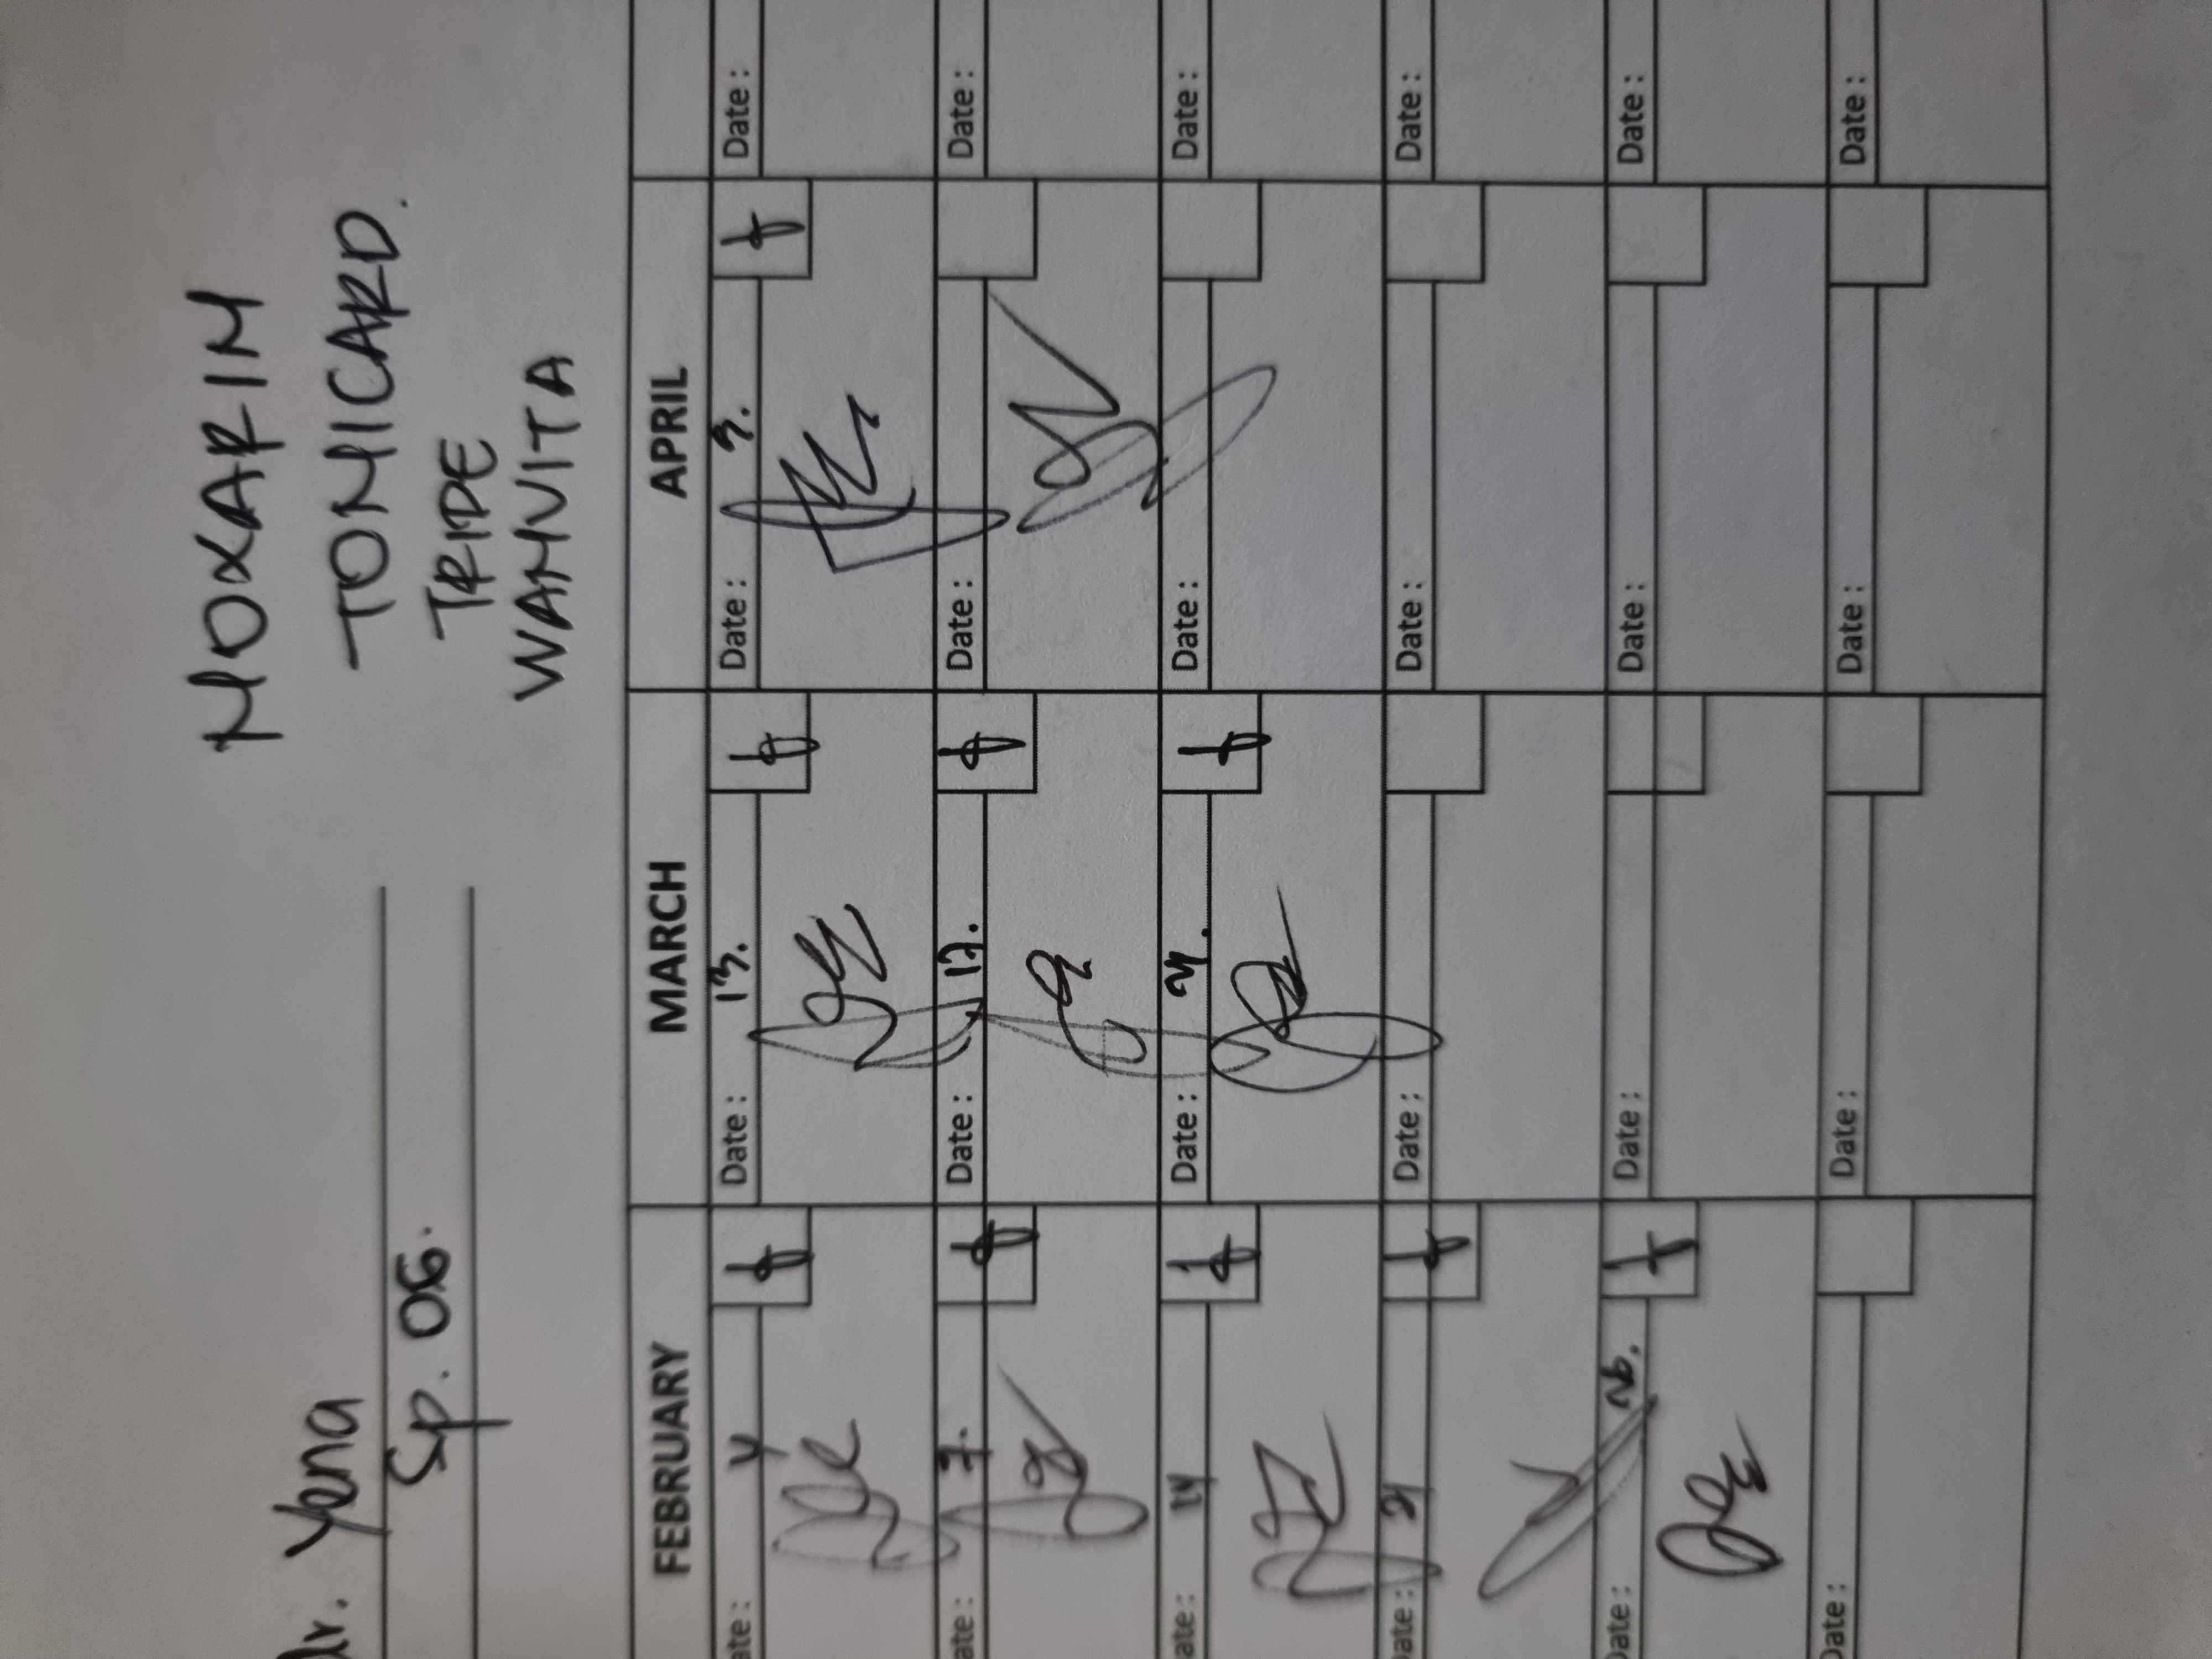 dr. Yena
Sp. OG.
NOXAFIM
TONICARD.
TRIDE
WANVITA
FEBRUARY MARCH APRIL
ate: 4 Date: 13. Date: 9. Date:
ate: 7. Date: 12. Date: Date:
ate: 14 Date: Date: Date:
ate: 21 Date: Date: Date:
Date: 26. Date: Date: Date:
Date: Date: Date: Date: